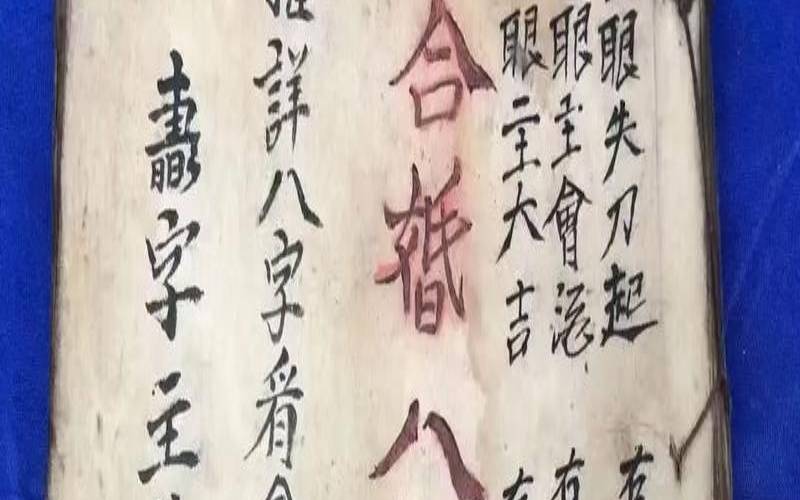 眼失刀起 右
眼主會 右
眼主大吉 右
合婚八
詳八字看
字主